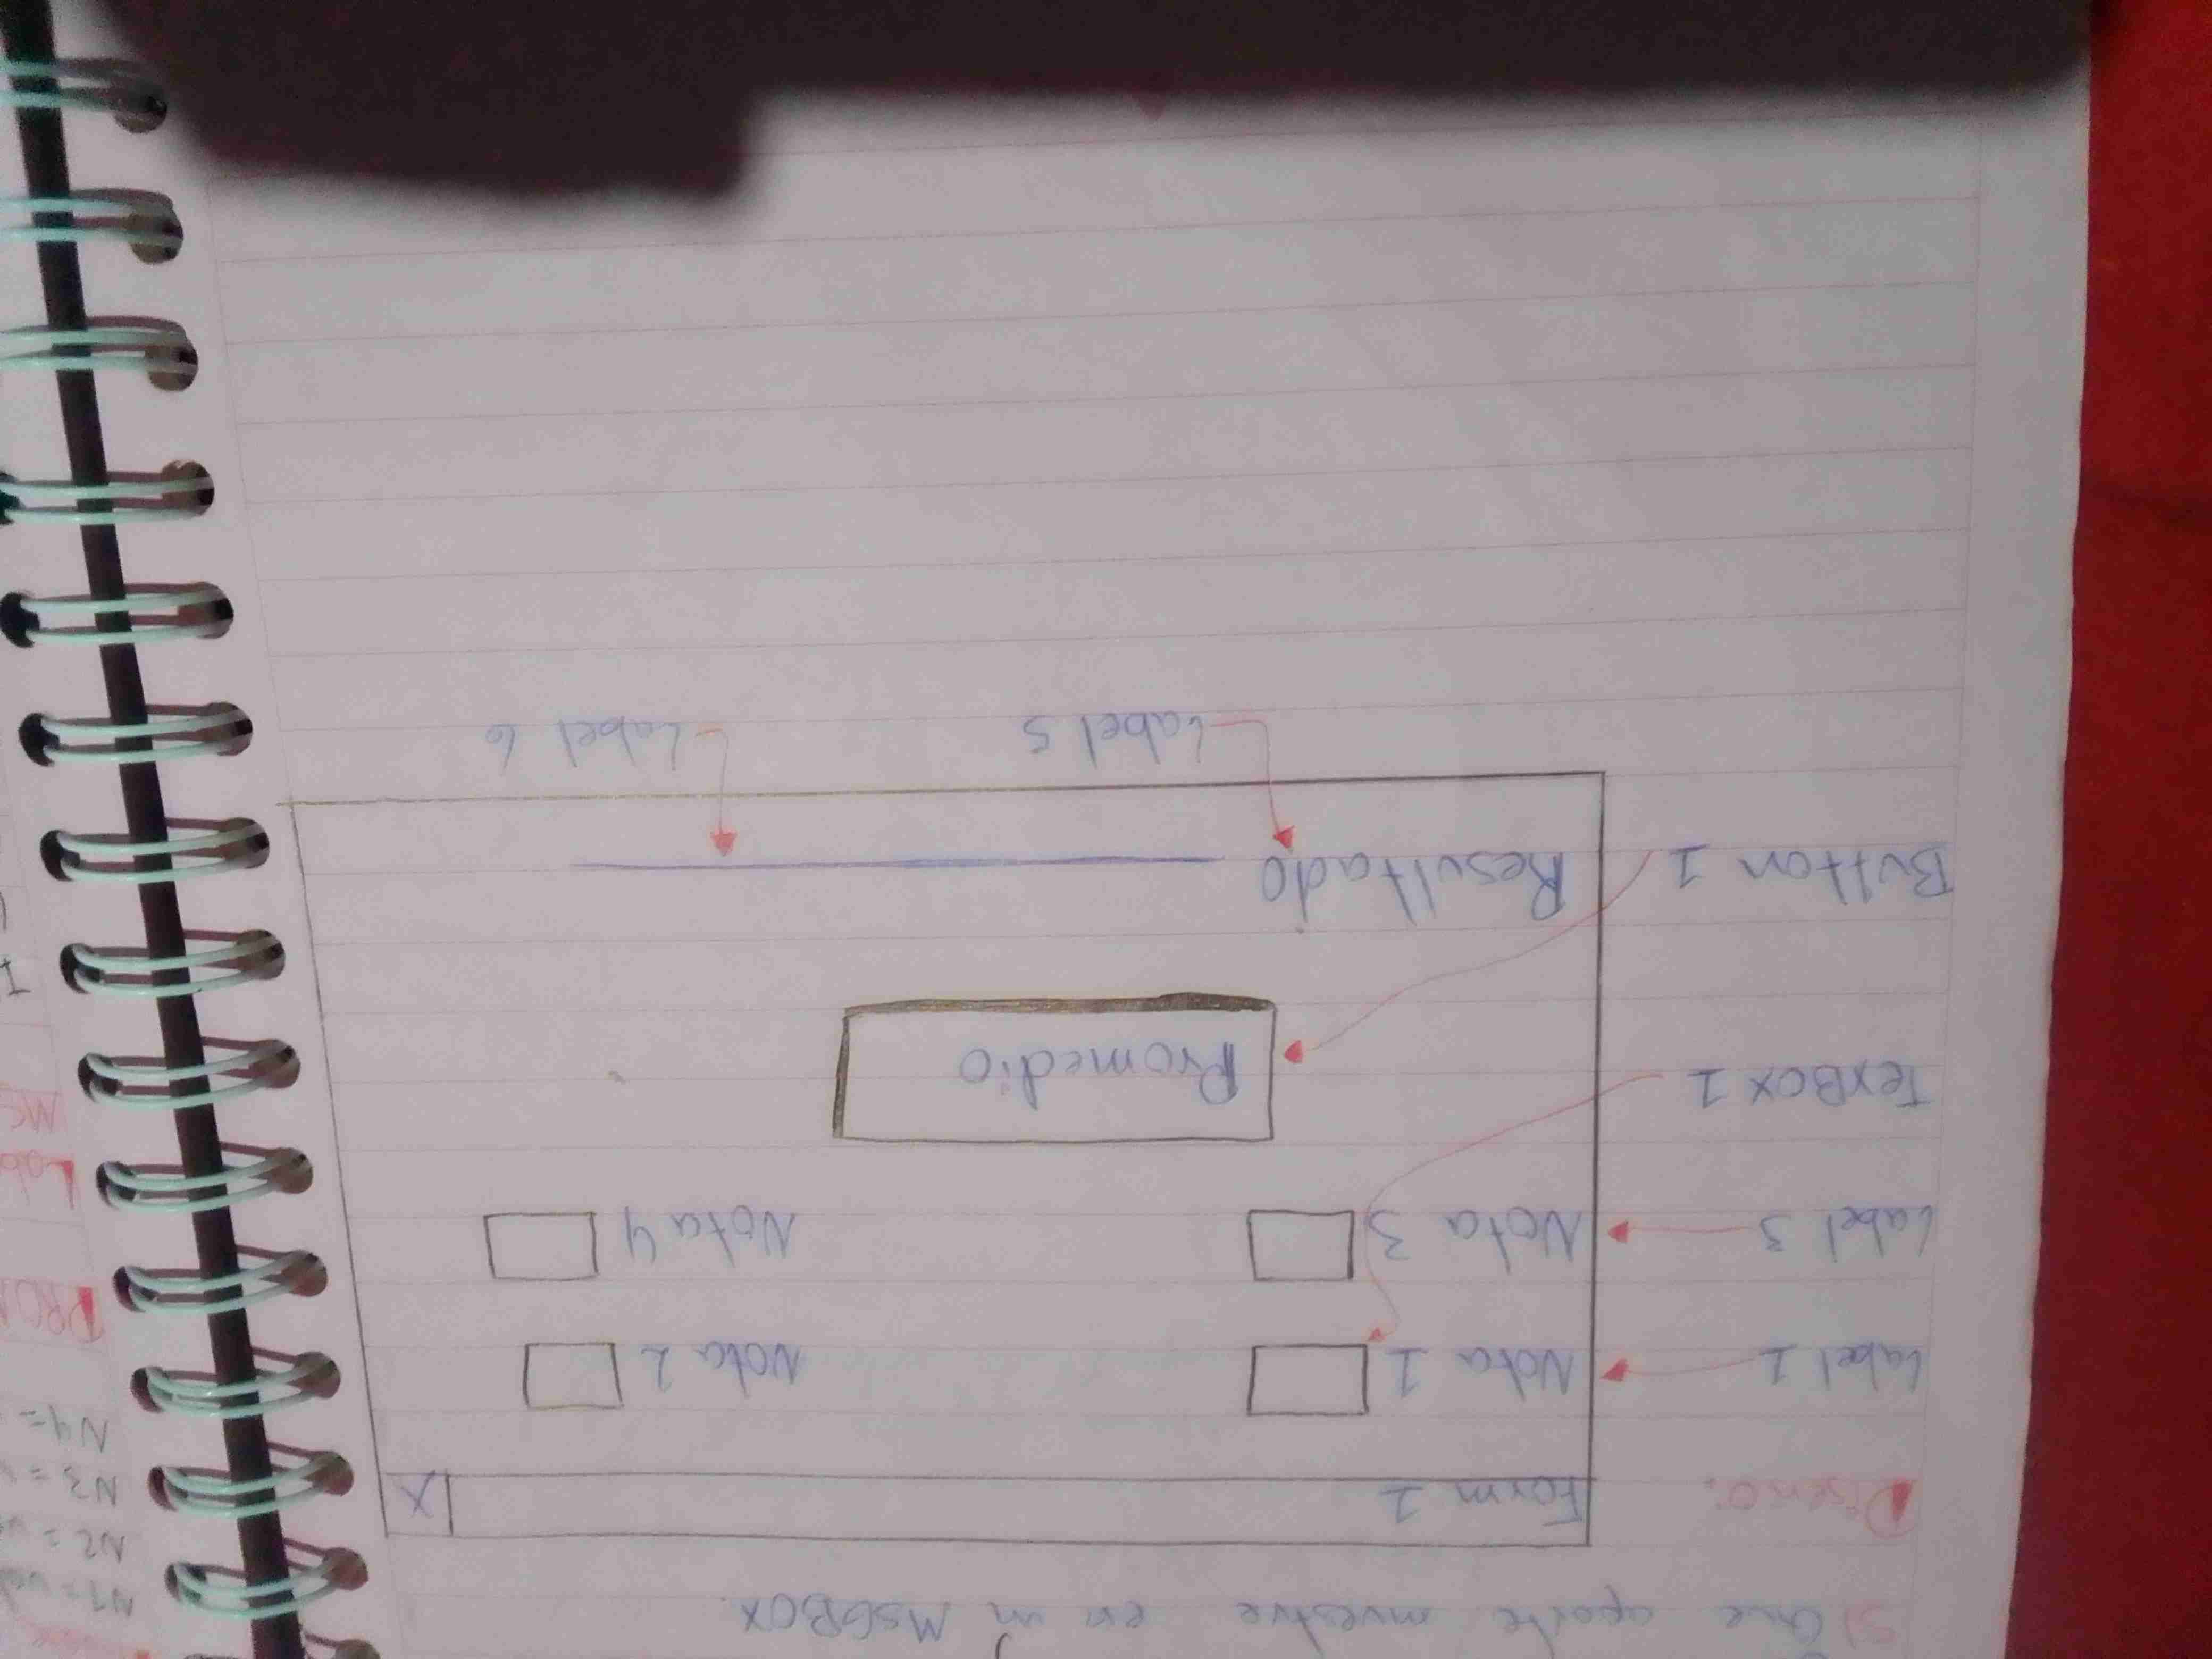 s) Que aparte muestre en un MSGBOX
Diseño:
Form 1 X
Label 1 Nota 1 Nota 2
Label 3 Nota 3 Nota 4
TexBox 1
Promedio
Button 1
Resultado
Label 5 Label 6
N2 =
N3 =
N4 =